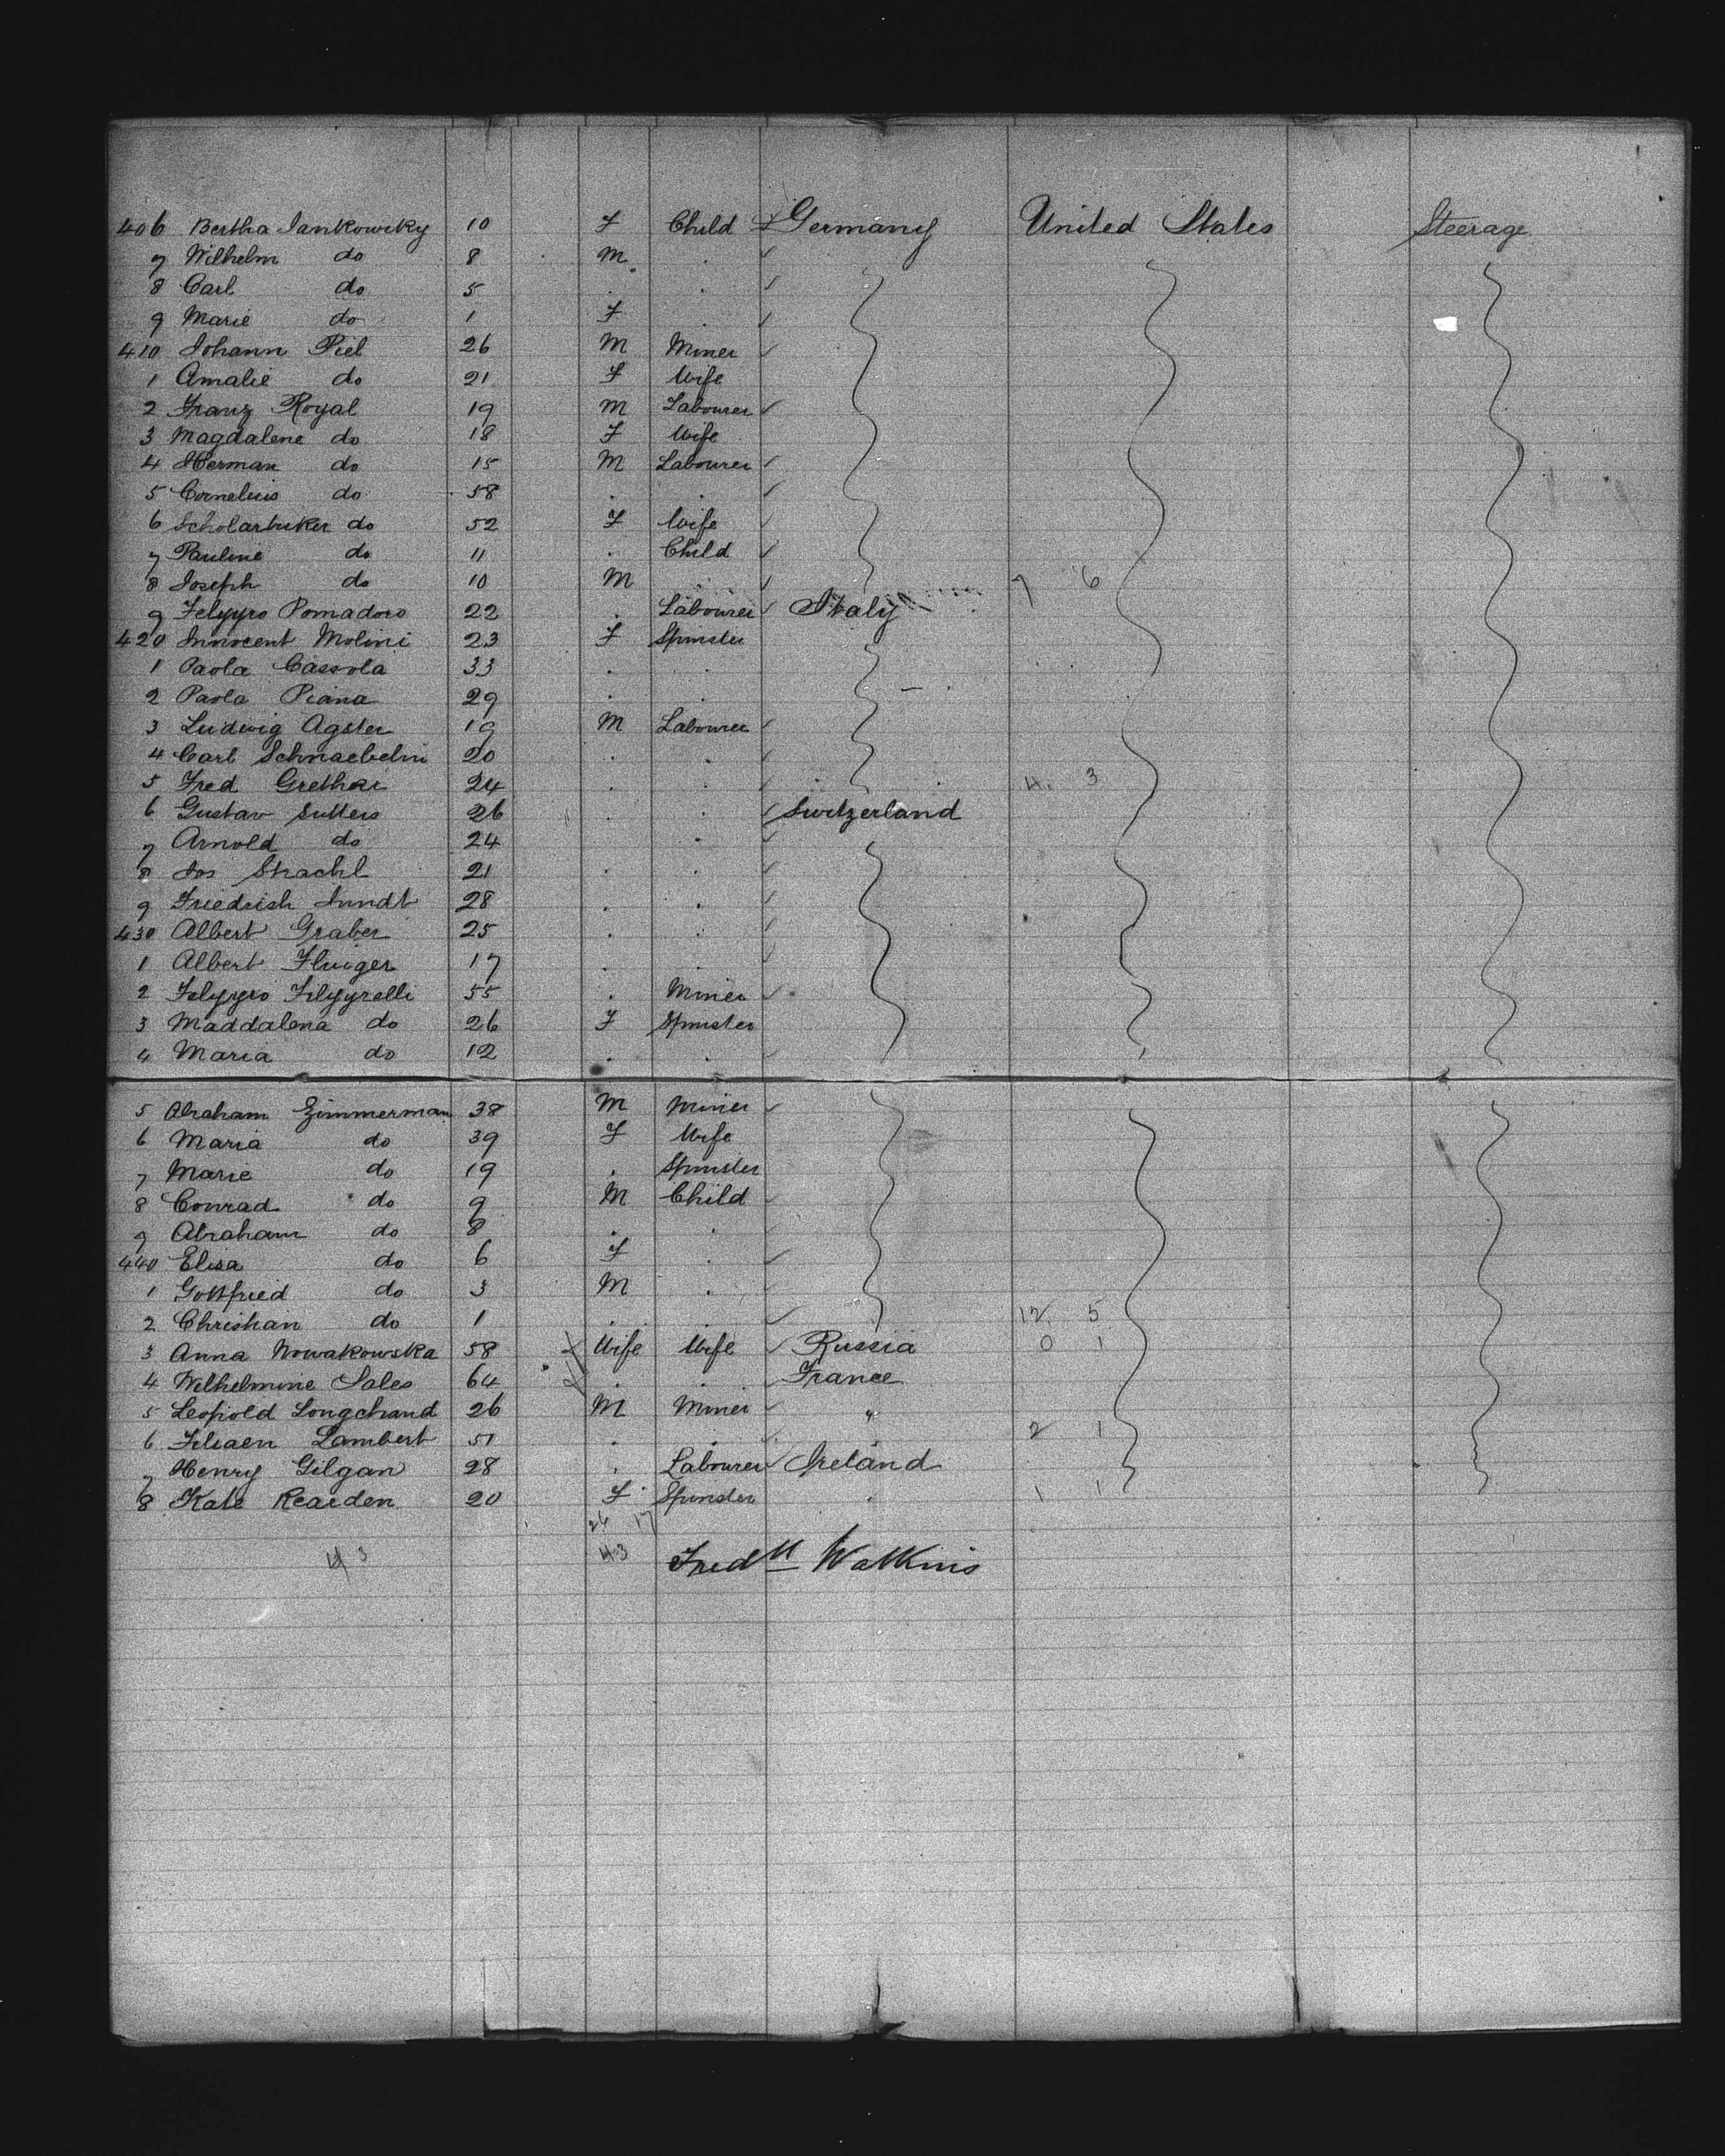 406 Bertha Jankowsky 10 F Child Germany United States Steerage
7 Wilhelm do 8 M
8 Carl do 5
9 Marie do 1 F
410 Johann Piel 26 M Miner
1 Amalie do 21 F Wife
2 Franz Royal 19 M Labourer
3 Magdalene do 18 F Wife
4 Herman do 15 M Labourer
5 Cornelius do 58
6 do 52 F Wife
7 Pauline do 11 . Child
8 Joseph do 10 M 7 6
9 Pomadoro 22 . Labourer Italy
420 Innocent Molini 23 F Spinster
1 Paola Cassola 33 . .
2 Paola Piana 29 . .
3 Ludwig Agster 19 M Labourer
4 Carl Schnaebelin 20 . .
5 Fred Grether 24 . . 4 3
6 Gustav Sutters 26 . . Switzerland
7 Arnold do 24 .
8 Jos Strachl 21 . .
9 Friedrich 28 . .
430 Albert Graber 25 . .
1 Albert Fluiger 17 . .
2 55 . Miner
3 Maddalena do 26 F Spinster
4 Maria do 12 . .
5 Abraham Zimmerman 38 M Miner
6 Maria do 39 F Wife
7 Marie do 19 . Spinster
8 Conrad do 9 M Child
9 Abraham do 8 . .
440 Elisa do 6 F .
1 Gottfried do 3 M .
2 Christian do 1 . . 12 5
3 Anna Nowakowska 58 Wife Wife Russia 0 1
4 Wilhelmine Sales 64 . . France
5 Leopold Longchand 26 M Miner "
6 Lambert 51 . . 2 1
7 Henry Gilgan 28 . Labourer Ireland
8 Kate Rearden 20 F Spinster . 1 1
26 17
43 43 Fredk Watkins